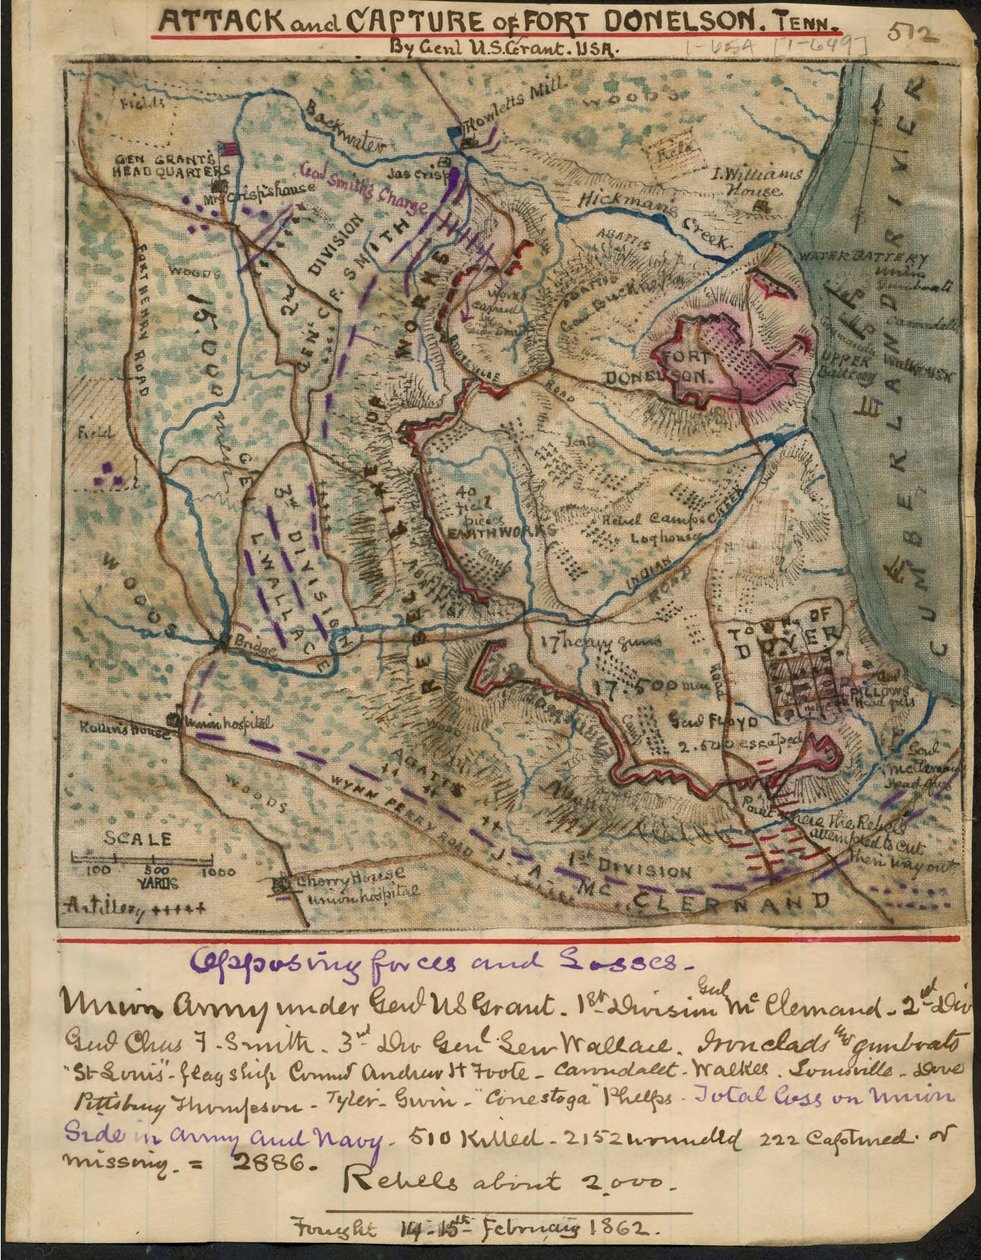 ATTACK and CAPTURE of FORT DONELSON. TENN.
By Genl U.S. Grant. USA.
512
Fields
Backwater
Howletts Mill
WOODS
Field
GEN GRANT'S
HEADQUARTERS
Mrs Crisp's house
Genl Smith's Charge
Jas Crisp
I. Williams
House
Hickman's Creek
WATER BATTERY
Union
Gunboats
Carondelet
Walke USN
ABATTIS
ABATTIS
Genl Buckner
WOODS
FORT HENRY ROAD
15,000 men
2nd DIVISION
GEN. C. F. SMITH
Works
Captured
Genl Smith
FORT
DONELSON.
UPPER
Battery
ROAD
CUMBERLAND RIVER
Field
3rd DIVISION
GEL L. WALLACE
REBEL LINE OF WORKS
40
field
pieces
EARTHWORKS
Camp
ABATTIS
Tents
Rebel Camps
Log houses
INDIAN CREEK
ROAD
WOODS
Bridge
17 heavy guns
TOWN OF
DOVER
17.500 men
Road
Genl FLOYD
2.500 escaped
Genl
PILLOWS
Head qrts
Genl
McClernand
Head qrs
Rollins House
Union hospital
WOODS
ABATTIS
WYNN FERRY ROAD
Point where the Rebels
attempted to cut
their way out
SCALE
100 500 1000
YARDS
Artillery +++++
Cherry House
Union hospital
1st DIVISION
J. A. Mc CLERNAND
Opposing forces and Losses -
Union Army under Genl US Grant. 1st Division Genl McClernand - 2nd Div
Genl Chas F. Smith - 3rd Div Genl Lew Wallace. Ironclads & gunboats
"St Louis" - flagship Comd Andrew H Foote - Carondalet - Walke, Louisville - Dove
Pittsburg Thompson - Tyler - Gwin - "Conestoga" Phelps - Total loss on Union
Side in Army and Navy - 510 Killed - 2152 wounded 222 Captured or
missing. = 2886.
Rebels about 2,000.
Fought 14-15th February 1862.